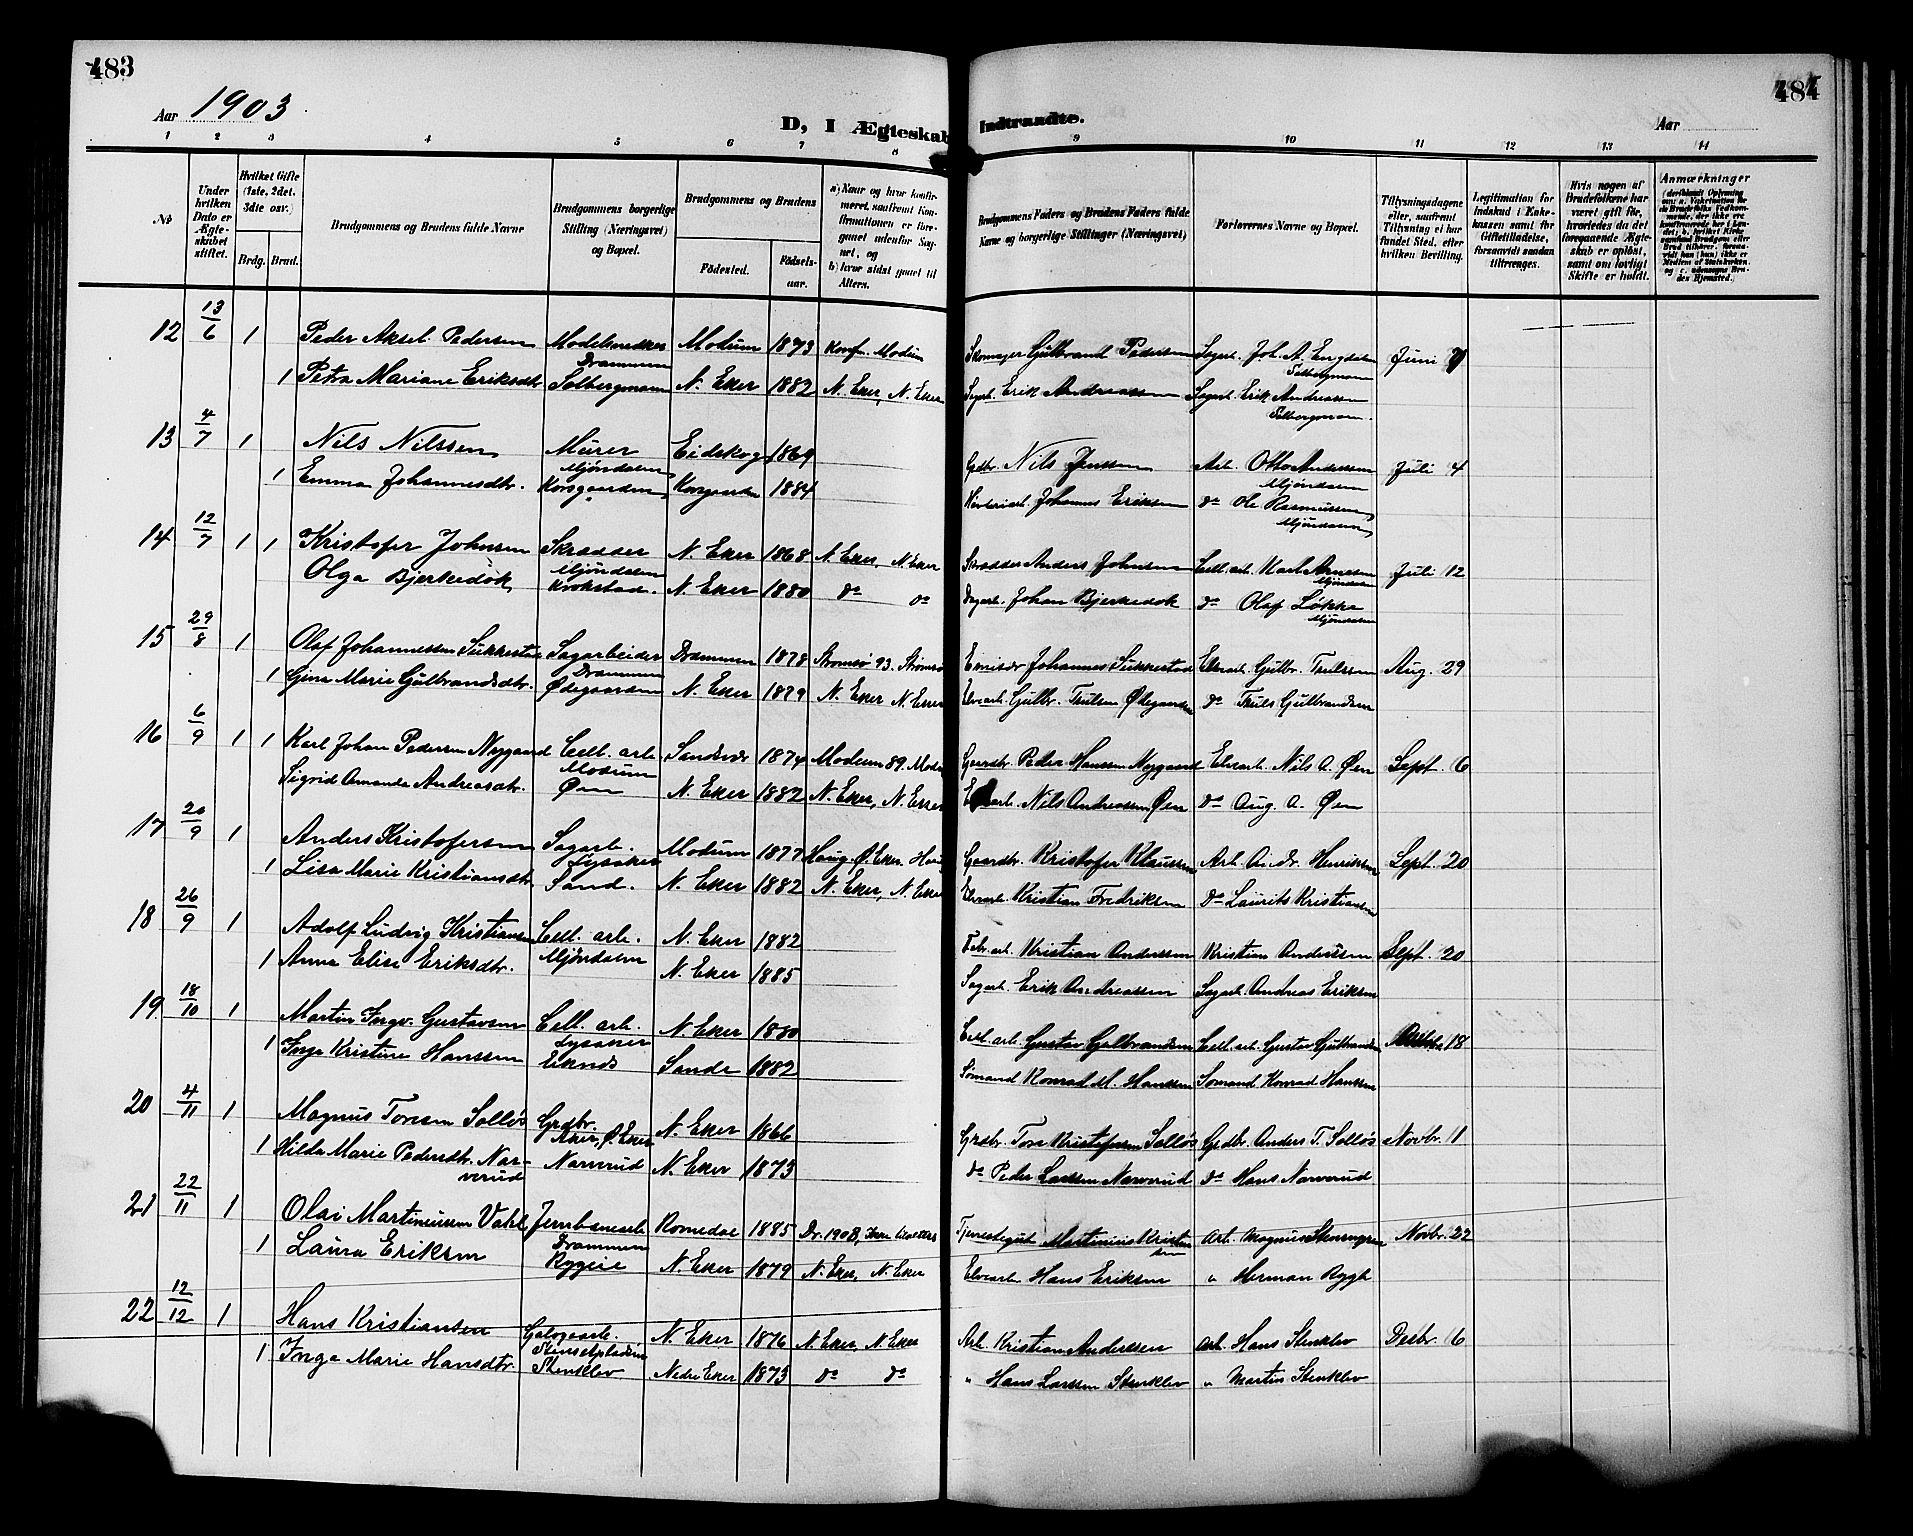 483
484
Aar 1903
D, I Ægteskab Indtraadte.
Aar
1 2 3 4 5 6 7 8 9 10 11 12 13 14
№
Under hvilken Dato er Ægteskabet stiftet.
Hvilket Gifte (1ste, 2det, 3dte osv.)
Brdg. Brud.
Brudgommens og Brudens fulde Navne
Brudgommens borgerlige Stilling (Næringsvei) og Bopæl.
Brudgommens og Brudens
Fødested. Fødselsaar.
a) Naar og hvor konfirmeret, saafremt Konfirmationen er foregaaet udenfor Sognet, og
b) hvor sidst gaaet til Alters.
Brudgommens Faders og Brudens Faders fulde Navne og borgerlige Stillinger (Næringsvei)
Forlovernes Navne og Bopæl.
Tillysningsdagene eller, saafremt Tillysning ei har fundet Sted, efter hvilken Bevilling.
Legitimation for Indskud i Enkekassen samt for Giftetilladelse, forsaavidt saadan tiltrænges.
Hvis nogen af Brudefolkene har været gift før, hvorledes da det foregaaende Ægteskab er opløst, samt om lovligt Skifte er holdt.
Anmærkninger
12 13/6 1 Peder Aksel Pedersen Modelsnedker Modum 1873 Konf. Modum Skomager Gulbrand Pedersen Sagarb. Joh. A. Engdalen Juni 7
Drammen Solbergmoen
1 Petra Mariane Eriksdtr. Solbergmoen N. Eker 1882 N. Eker, N. Eker Sagarb. Erik Andreassen Sagarb. Erik Andreassen
Solbergmoen
13 4/7 1 Nils Nilssen Murer Eidskog 1869 Grdbr. Nils Jenssen Arb. Otto Andersen Juli 4
Mjøndalen Mjøndalen
1 Emma Johannesdtr. Korsgaarden Korsgaarden 1884 Johannes Eriksen do Ole Rasmussen
Mjøndalen
14 12/7 1 1 Kristofer Johnsen Skrædder N. Eker 1868 N. Eker, N. Eker Skrædder Anders Johnsen Cell. arb. Karl Arnesen Juli 12
Mjøndalen Mjøndalen
Olga Bjerkedok Krokstad. N. Eker 1880 do do Dagarb. Johan Bjerkedok do Olaf Løkka
Mjøndalen
15 29/8 1 Olaf Johannessen Sukkestad Sagarbeider Drammen 1878 Strømsø 93. Strømsø Johannes Sukkestad Elvearb. Gulbr. Trulssen Aug. 29
Drammen
1 Gina Marie Gulbrandsdtr. Ødegaarden N. Eker 1879 N. Eker N. Eker Elvearb. Gulbr. Trulsen Ødegaarden do Truls Gulbrandsen
16 6/9 1 1 Karl Johan Pedersen Nygaard Cell. arb. Sandsvær 1874 Modum 89. Modum Gaardbr. Peder Hanssen Nygaard Elvearb. Nils A. Øen Sept. 6
Modum
Sigrid Amanda Andreasdtr. Øen N. Eker 1882 N. Eker, N. Eker Elvearb. Nils Andreassen Øen do Aug. A. Øen
17 20/9 1 Anders Kristofersen Sagarb. Modum 1877 Haug. Ø. Eker. Haug Gaardbr. Kristofer Klaussen Arb. Andr. Henriksen Sept. 20
Lysaker
1 Lisa Marie Kristiansdtr. Sand. N. Eker 1882 N. Eker, N. Eker Elvearb. Kristian Fredriksen do Laurits Kristiansen
18 26/9 1 Adolf Ludvig Kristiansen Cell. arb. N. Eker 1882 Febr. arb. Kristian Andersen Kristian Andersen Sept. 20
Mjøndalen
1 Anna Elise Eriksdtr. N. Eker 1885 Sagarb. Erik Andreassen Sagarb. Andreas Eriksen
19 18/10 1 Martin Ingv. Gustavsen Cell. arb. N. Eker 1880 Cell. arb. Gustav Gulbrandsen Cell. arb. Gustav Gulbrandsen 18
Lysaker
1 Inga Kristine Hanssen Eknes Sande 1882 Sømand Konrad M. Hanssen Sømand Konrad Hanssen
20 4/11 1 Magnus Toresen Solløs Grdbr. N. Eker 1866 Grdbr. Tore Kristofersen Solløs Grdbr. Anders T. Solløs Novbr. 1
Aker, Ø. Eker
1 Hilda Marie Pedersdtr. Narverud Narverud N. Eker 1873 do Peder Larssen Narverud do Hans Narverud
21 22/11 1 Olai Martinussen Vahl Jernbanearb. Romedal 1885 Martinius Kristensen Arb. Magnus Novbr. 22
Drammen
1 Laura Eriksen Ryggeie N. Eker 1879 N. Eker, N. Eker Elvearb. Hans Eriksen " Herman Rygh
22 12/12 1 Hans Kristiansen N. Eker 1876 N. Eker, N. Eker Arb. Kristian Andersen Arb. Hans Stenklev Decbr. 6
1 Inga Marie Hansdtr. Stenklev Nedre Eker 1873 do do " Hans Larssen Stenklev " Martin Stenklev